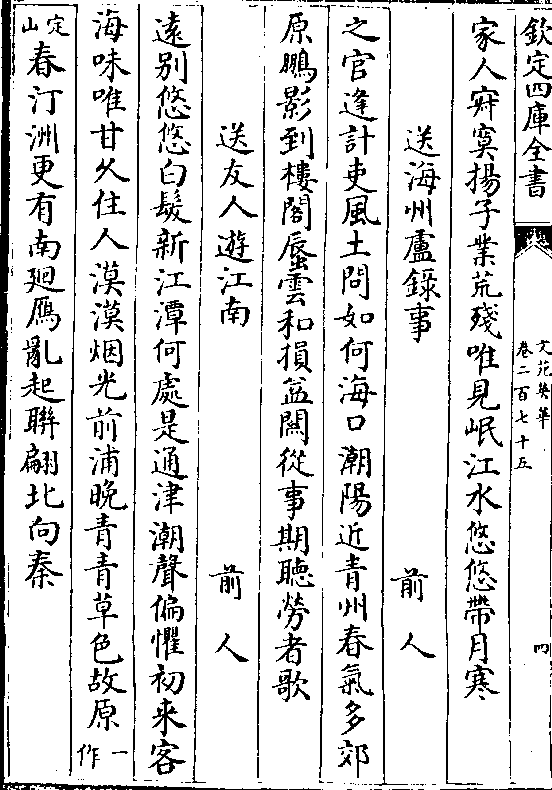 欽定四庫全書
文苑英華
卷二百七十五
四
家人寂寞揚子業荒殘唯見岷江水悠悠帶月寒
送海州盧錄事　前人
之官逢計吏風土問如何海口潮陽近青州春氣多郊
原鵬影到樓閣蜃雲和損益關從事期聽勞者歌
送友人遊江南　前人
遠别悠悠白髮新江潭何處是通津潮聲偏懼初来客
海味唯甘久住人漠漠烟光前浦晚青青草色故原一作
定山春汀洲更有南廻鴈亂起聯翩北向秦